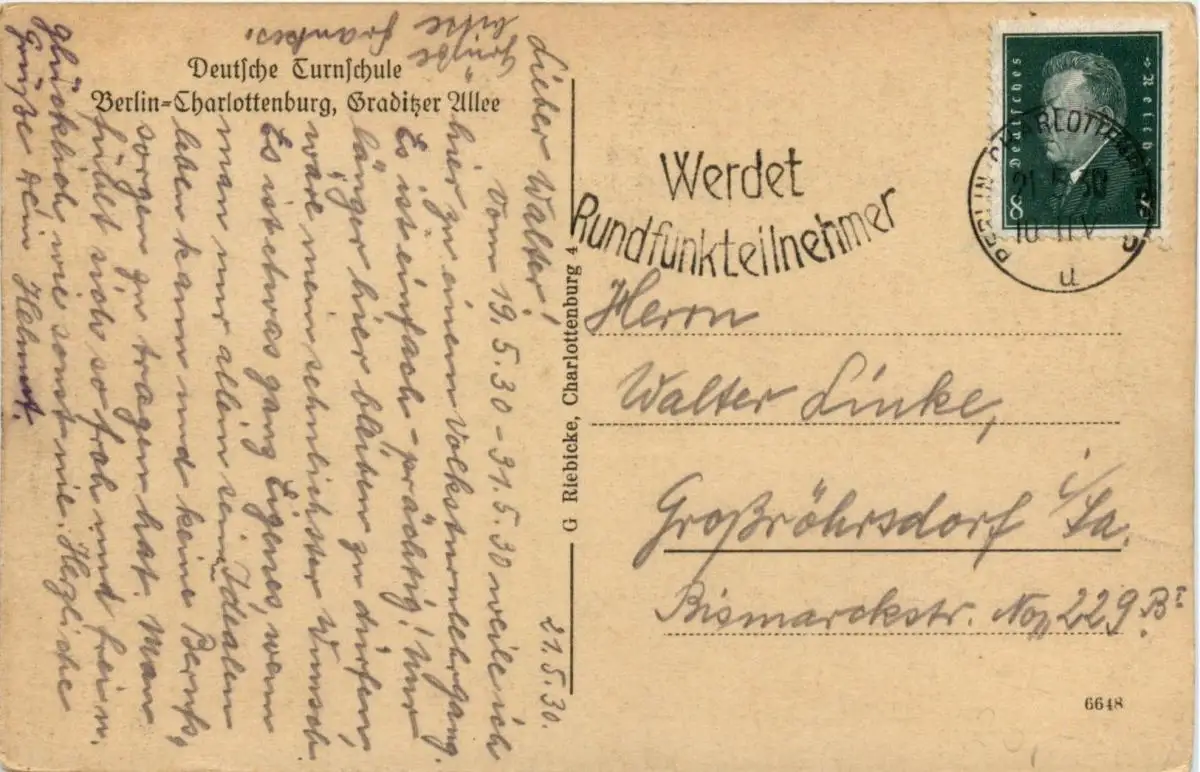 Deutsche Turnschule
Berlin-Charlottenburg, Graditzer Allee
21.5.30.
Lieber Walter!
Vom 19.5.30 – 31.5.30 weile ich
hier zu einem Volksturnlehrgang.
Es ist einfach – prächtig! Nur
länger hier bleiben zu dürfen,
wäre mein sehnlichster Wunsch
Es ist etwas ganz Eigenes, wenn
man nur allein seinen Idealen
leben kann und keine Berufs-
sorgen zu tragen hat. Man
fühlt sich so froh und frei u.
glücklich wie sonst nie. Herzliche
Grüße Dein Helmut.
Grüße bitte
Franke.
G Riebicke, Charlottenburg 4
Werdet
Rundfunkteilnehmer
Deutsches Reich
8
BERLIN-CHARLOTTENBURG
21.5.30
10-11 V
u
Herrn
Walter Linke,
Großröhrsdorf i/Sa.
Bismarckstr. No 229 B
6648